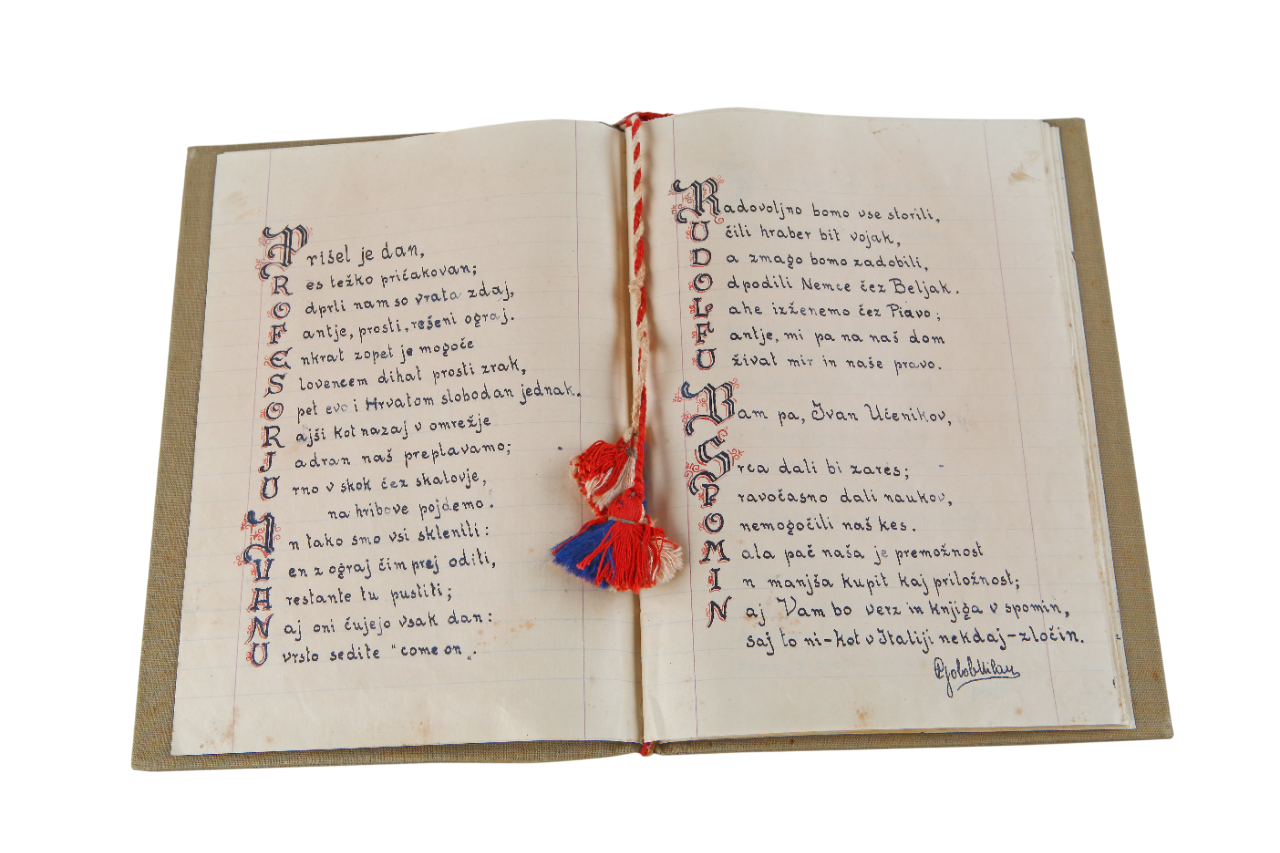 Prišel je dan,
Res težko pričakovan;
Odprli nam so vrata zdaj,
Fantje, prosti, rešeni ograj.
Enkrat zopet je mogoče
Slovencem dihat prosti zrak,
Opet evo i Hrvatom slobodan jednak.
Rajši kot nazaj v omrežje
Jadran naš preplavamo;
Urno v skok čez skalovje,
na hribove pojdemo.
In tako smo vsi sklenili:
Ven z ograj čim prej oditi,
Arestante tu pustiti;
Naj oni čujejo vsak dan:
U vrsto sedite "come on„.
Radovoljno bomo vse storili,
Učili hraber bit vojak,
Da zmago bomo zadobili,
Odpodili Nemce čez Beljak.
Lahe izženemo čez Piavo;
Fantje, mi pa na naš dom
Uživat mir in naše pravo.
Vam pa, Ivan Učenikov,
Srca dali bi zares;
Pravočasno dali naukov,
Onemogočili naš kes.
Mala pač naša je premožnost
In manjša kupit kaj priložnost;
Naj Vam bo verz in knjiga v spomin,
saj to ni-kot v Italiji nekdaj-zločin.
Golob Milan